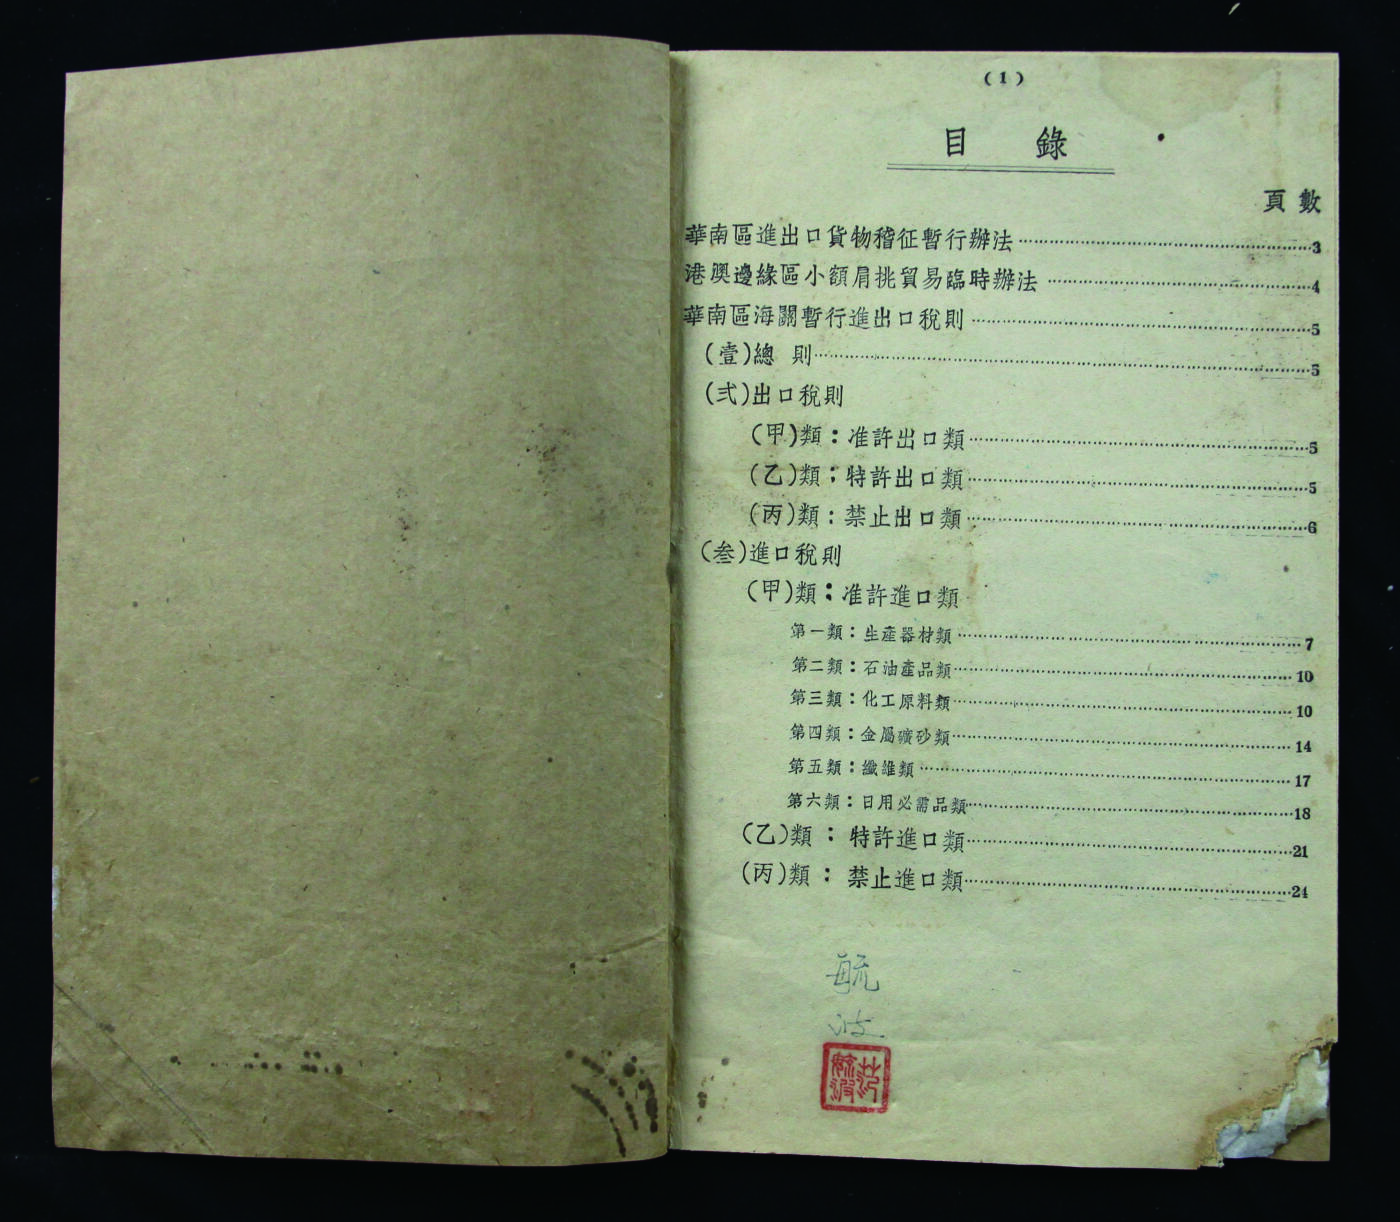 (1)
目 錄
頁數
華南區進出口貨物稽征暫行辦法……3
港澳邊緣區小額肩挑貿易臨時辦法……4
華南區海關暫行進出口稅則……5
(壹)總 則……5
(弍)出口稅則
(甲)類:准許出口類……5
(乙)類:特許出口類……5
(丙)類:禁止出口類……6
(叁)進口稅則
(甲)類:准許進口類
第一類:生產器材類……7
第二類:石油產品類……10
第三類:化工原料類……10
第四類:金屬礦砂類……14
第五類:纖維類……17
第六類:日用必需品類……18
(乙)類:特許進口類……21
(丙)類:禁止進口類……24
毓
波